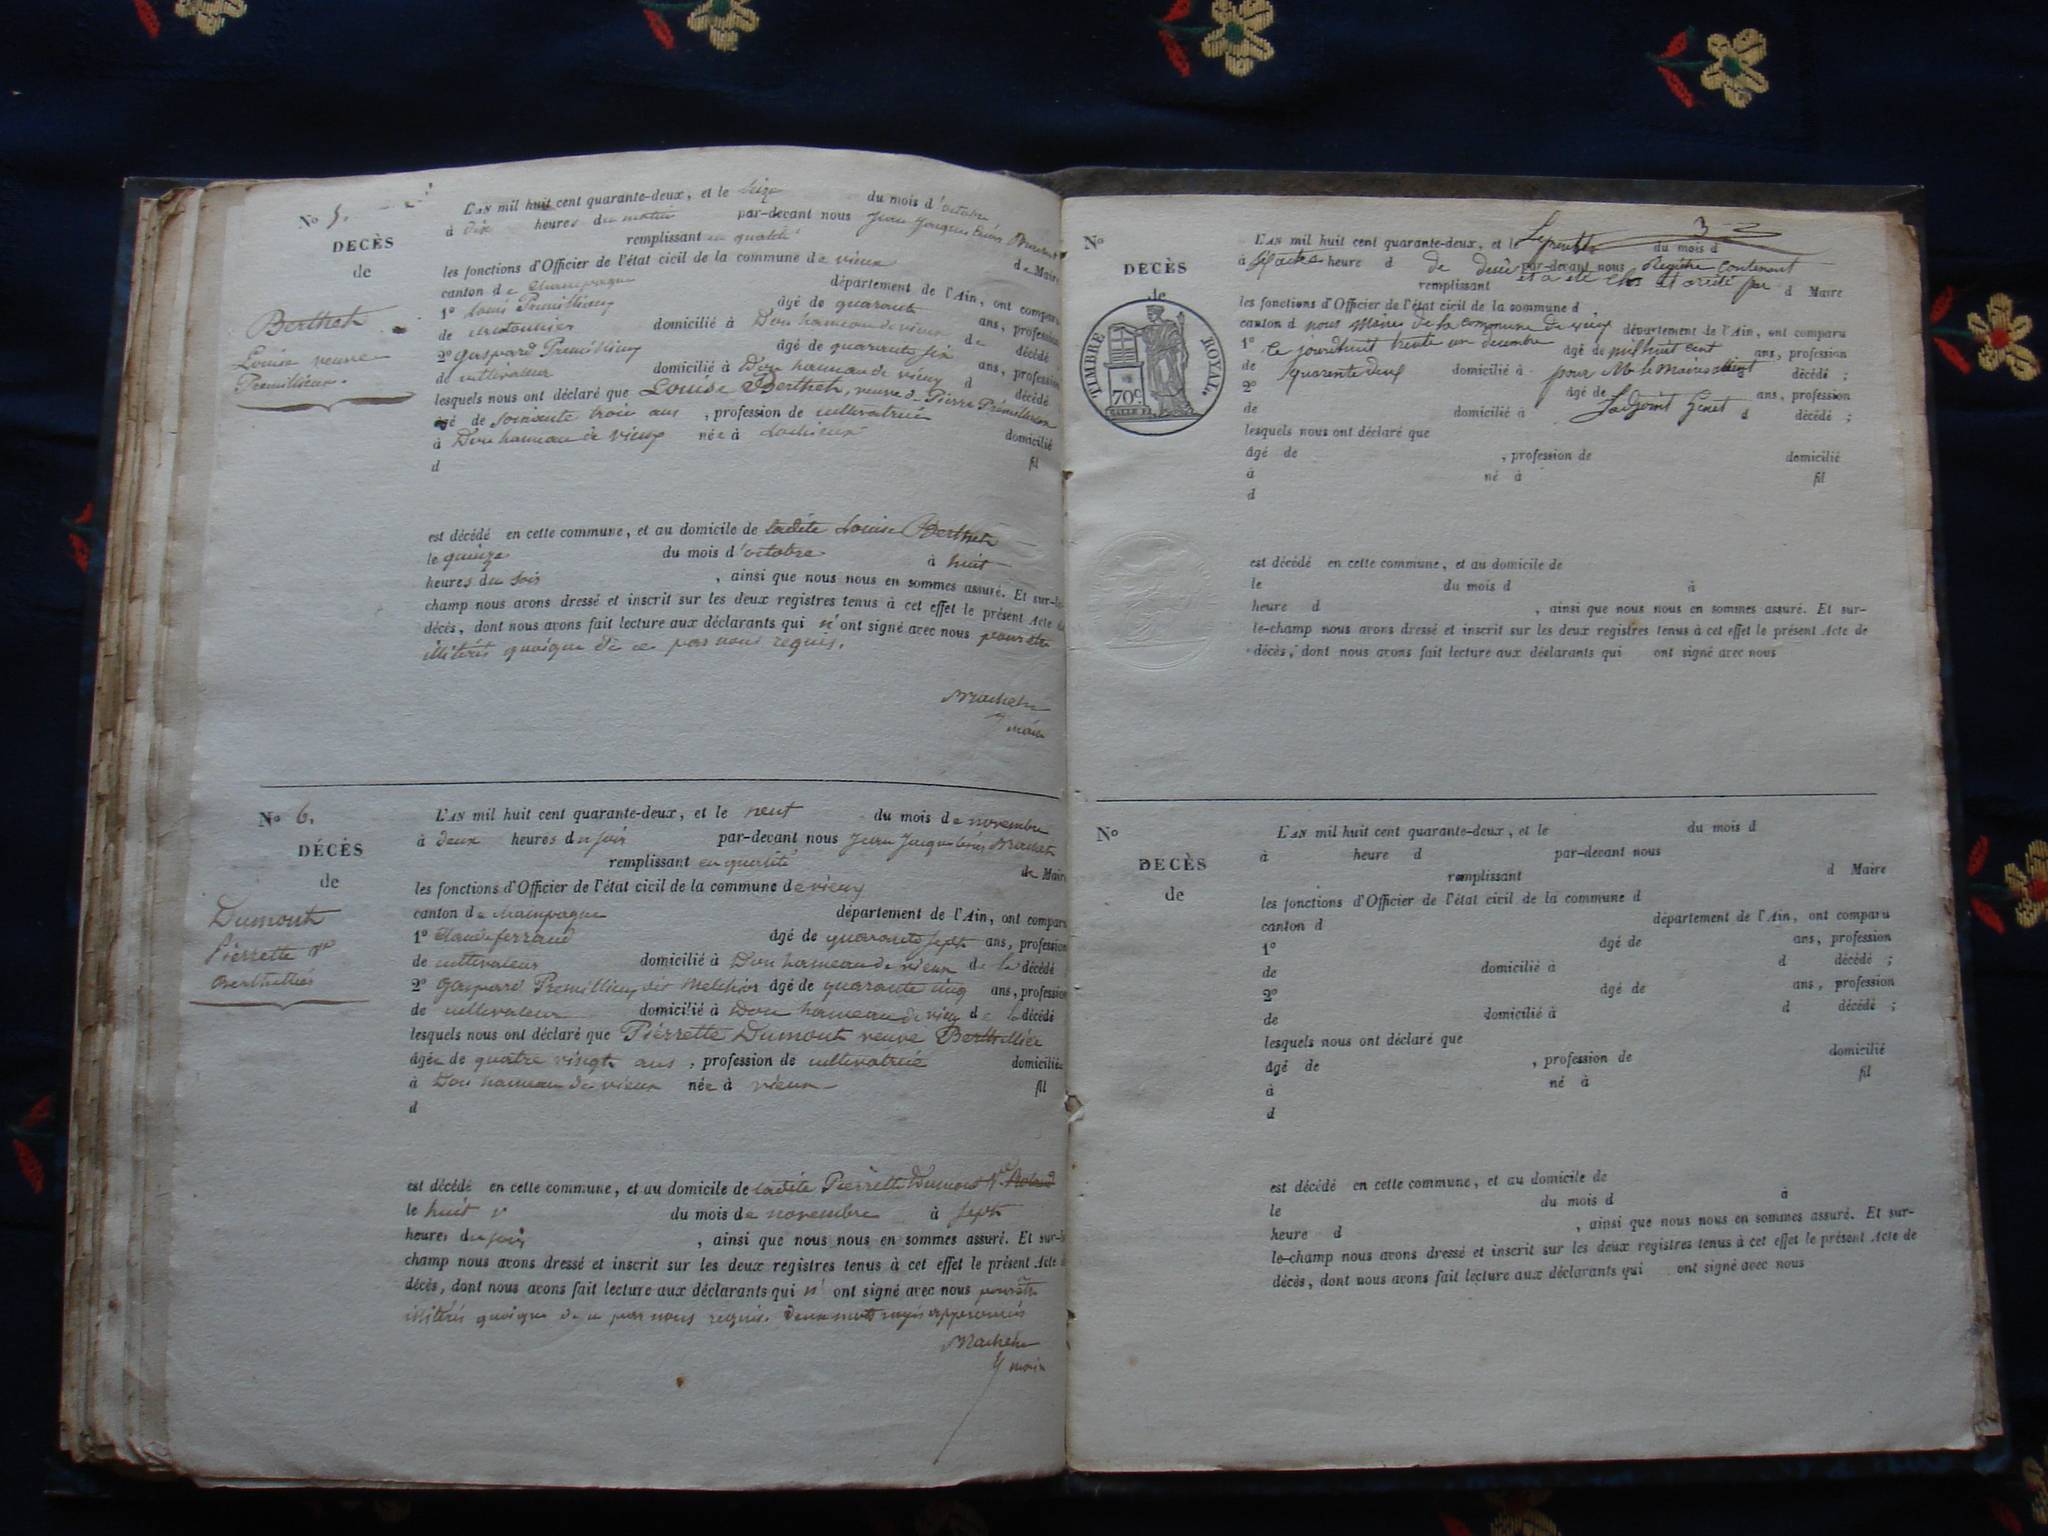 No 5.
DECÈS
de
Bertheh
Louise veuve
L'AN mil huit cent quarante-deux, et le seize du mois d'octobre
à dix heures du matin par-devant nous Jean Jacques
remplissant en qualité de Maire
les fonctions d'Officier de l'état cicil de la commune de vieux
canton de Champagne département de l'Ain, ont comparu
1º Louis Premillieux âgé de quarante ans, profession
de domicilié à Don hameau de vieux de décédé
2º gaspard Premillieux âgé de quarante six ans, profession
de cultivateur domicilié à Don hameau de vieux d décédé
lesquels nous ont déclaré que Louise Bertheh, veuve de Pierre Premillieux
âgé de soixante trois ans , profession de cultivatrice domicilié
à Don hameau de vieux née à fil
d
est décédé en cette commune, et au domicile de ladite Louise Bertheh
le quinze du mois d'octobre à huit
heures du soir , ainsi que nous nous en sommes assuré. Et sur-le-
champ nous avons dressé et inscrit sur les deux registres tenus à cet effet le présent Acte de
décès, dont nous avons fait lecture aux déclarants qui n'ont signé avec nous pour être
illitérés quoique de ce par nous requis.
maire
No 6.
DÉCÈS
de
Dumont
Pierrette
L'AN mil huit cent quarante-deux, et le neuf du mois de novembre
à deux heures du soir par-devant nous Jean Jacques
remplissant en qualité de Maire
les fonctions d'Officier de l'état cicil de la commune de vieux
canton de Champagne département de l'Ain, ont comparu
1º Claude ferrand âgé de quarante sept ans, profession
de cultivateur domicilié à Don hameau de vieux de la décédé
2º gaspard Premillieux dit Melchior âgé de quarante cinq ans, profession
de cultivateur domicilié à Don hameau de vieux de la décédé
lesquels nous ont déclaré que Pierrette Dumont veuve Berthellier
âgée de quatre vingt ans , profession de cultivatrice domiciliée
à Don hameau de vieux née à vieux fil
d
est décédé en cette commune, et au domicile de ladite Pierrette Dumont
le huit du mois de novembre à sept
heures du soir , ainsi que nous nous en sommes assuré. Et sur-le-
champ nous avons dressé et inscrit sur les deux registres tenus à cet effet le présent Acte de
décès, dont nous avons fait lecture aux déclarants qui n'ont signé avec nous pour être
illitérés quoique de ce par nous requis. deux mots rayés approuvés
maire
3
No
DECÈS
de
TIMBRE ROYAL
70c
L'AN mil huit cent quarante-deux, et le Le présent du mois d
à Six actes heure d de décès par-devant nous Registre contenant
remplissant et a été clos et arrêté par d Maire
les fonctions d'Officier de l'état cicil de la commune d
canton d nous Maire de la commune de vieux département de l'Ain, ont comparu
1º ce jourdhuit trente un décembre âgé de mil huit cent ans, profession
de quarente deux domicilié à pour Mr le Maire décédé ;
2º âgé de ans, profession
de domicilié à L'adjoint d décédé ;
lesquels nous ont déclaré que
âgé de , profession de domicilié
à né à fil
d
est décédé en cette commune, et au domicile de
le du mois d à
heure d , ainsi que nous nous en sommes assuré. Et sur-
le-champ nous avons dressé et inscrit sur les deux registres tenus à cet effet le présent Acte de
décès, dont nous avons fait lecture aux déclarants qui ont signé avec nous
No
DECÈS
de
L'AN mil huit cent quarante-deux, et le du mois d
à heure d par-devant nous
remplissant d Maire
les fonctions d'Officier de l'état cicil de la commune d
canton d département de l'Ain, ont comparu
1º âgé de ans, profession
de domicilié à d décédé ;
2º âgé de ans, profession
de domicilié à d décédé ;
lesquels nous ont déclaré que
âgé de , profession de domicilié
à né à fil
d
est décédé en cette commune, et au domicile de
le du mois d à
heure d , ainsi que nous nous en sommes assuré. Et sur-
le-champ nous avons dressé et inscrit sur les deux registres tenus à cet effet le présent Acte de
décès, dont nous avons fait lecture aux déclarants qui ont signé avec nous